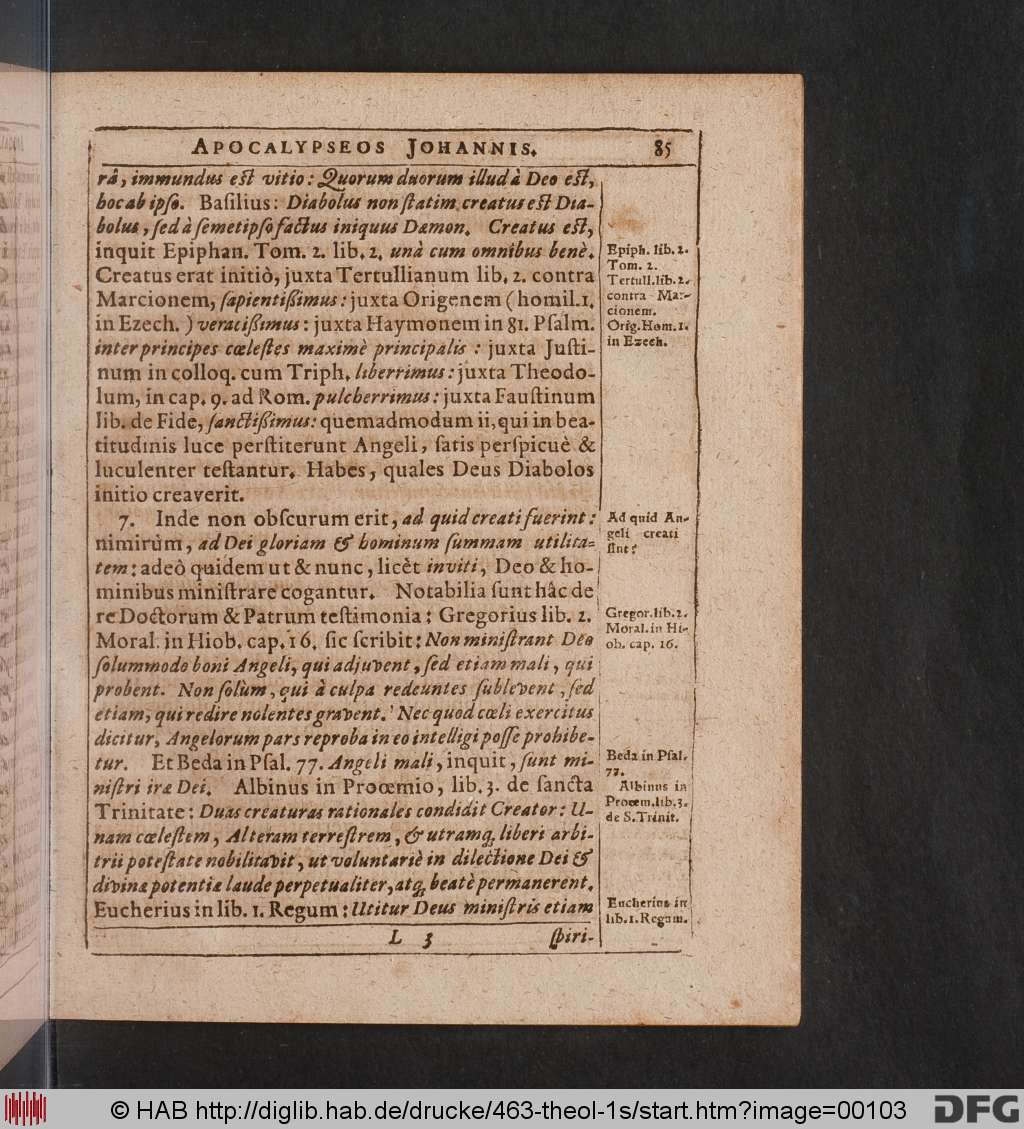 APOCALYPSEOS JOHANNIS. 85
râ, immundus est vitio: Quorum duorum illud à Deo est,
hoc ab ipso. Baſilius: Diabolus non ſtatim creatus est Dia-
bolus, ſed à ſemetipſo factus iniquus Dæmon. Creatus est,
inquit Epiphan. Tom. 2. lib. 2. unà cum omnibus benè.
Creatus erat initiò, juxta Tertullianum lib. 2. contra
Marcionem, ſapientißimus: juxta Origenem (homil. 1.
in Ezech.) veracißimus: juxta Haymonem in 81. Pſalm.
inter principes cœleſtes maximè principalis: juxta Juſti-
num in colloq. cum Triph. liberrimus: juxta Theodo-
lum, in cap. 9. ad Rom. pulcherrimus: juxta Fauſtinum
lib. de Fide, ſanctißimus: quemadmodum ii, qui in bea-
titudinis luce perſtiterunt Angeli, ſatis perſpicuè &
luculenter teſtantur. Habes, quales Deus Diabolos
initio creaverit.
7. Inde non obſcurum erit, ad quid creati fuerint:
nimirùm, ad Dei gloriam & hominum ſummam utilita-
tem: adeò quidem ut & nunc, licèt inviti, Deo & ho-
minibus miniſtrare cogantur. Notabilia ſunt hâc de
re Doctorum & Patrum teſtimonia: Gregorius lib. 2.
Moral. in Hiob. cap. 16. ſic ſcribit: Non miniſtrant Deo
ſolummodo boni Angeli, qui adjuvent, ſed etiam mali, qui
probent. Non ſolùm, qui à culpa redeuntes ſublevent, ſed
etiam, qui redire nolentes gravent. Nec quod cœli exercitus
dicitur, Angelorum pars reproba in eo intelligi poſſe prohibe-
tur. Et Beda in Pſal. 77. Angeli mali, inquit, ſunt mi-
niſtri iræ Dei. Albinus in Proœmio, lib. 3. de ſancta
Trinitate: Duas creaturas rationales condidit Creator: U-
nam cœleſtem, Alteram terreſtrem, & utramq; liberi arbi-
trii poteſtate nobilitavit, ut voluntariè in dilectione Dei &
divinæ potentiæ laude perpetualiter, atq; beatè permanerent.
Eucherius in lib. 1. Regum: Utitur Deus miniſtris etiam
L 3 ſpiri-
Epiph. lib. 2.
Tom. 2.
Tertull. lib. 2.
contra Mar-
cionem.
Orig. Hom. 1.
in Ezech.
Ad quid An-
geli creati
ſint?
Gregor. lib. 2.
Moral. in Hi-
ob. cap. 16.
Beda in Pſal.
77.
Albinus in
Proœm. lib. 3.
de S. Trinit.
Eucherius in
lib. 1. Regum.
© HAB http://diglib.hab.de/drucke/463-theol-1s/start.htm?image=00103
DFG